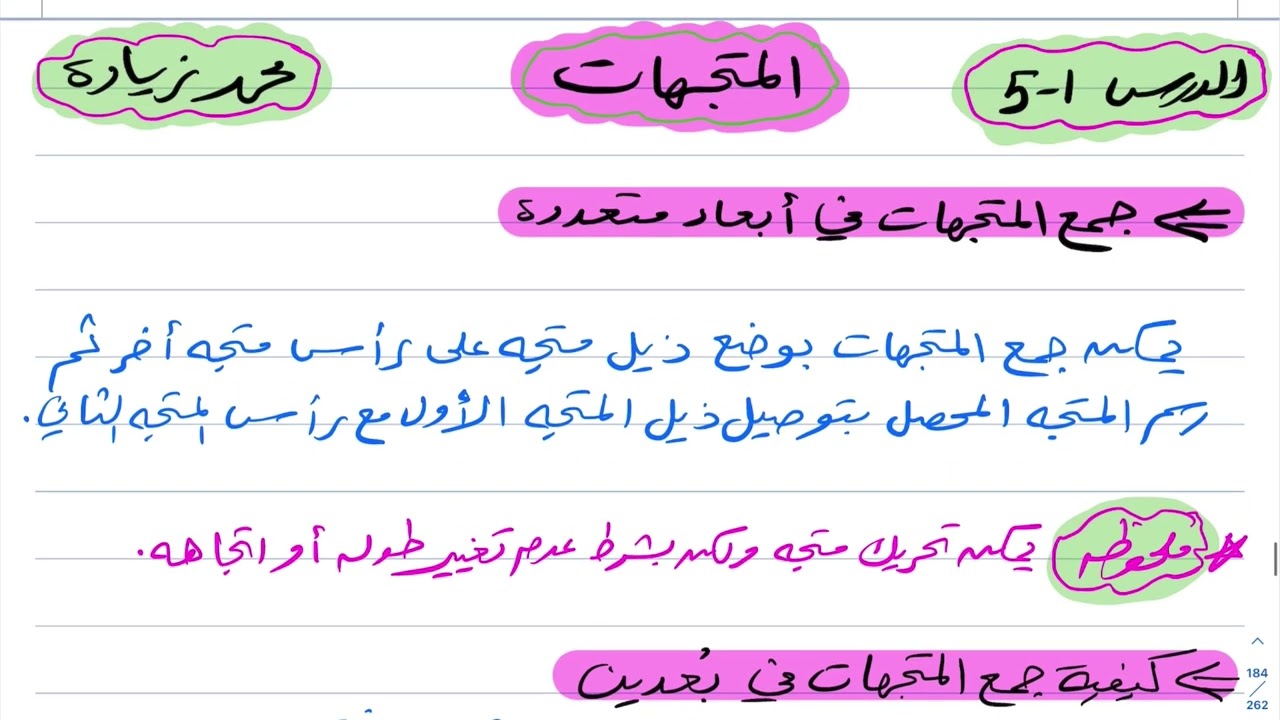 الدرس 1-5
المتجهات
محمد زيادة
جمع المتجهات في أبعاد متعددة
يمكن جمع المتجهات بوضع ذيل متجه على رأس متجه أخر ثم
رسم المتجه المحصل بتوصيل ذيل المتجه الأول مع رأس المتجه الثاني.
* ملحوظه يمكن تحريك متجه ولكن بشرط عدم تغيير طوله أو اتجاهه.
كيفية جمع المتجهات في بُعدين
184
262